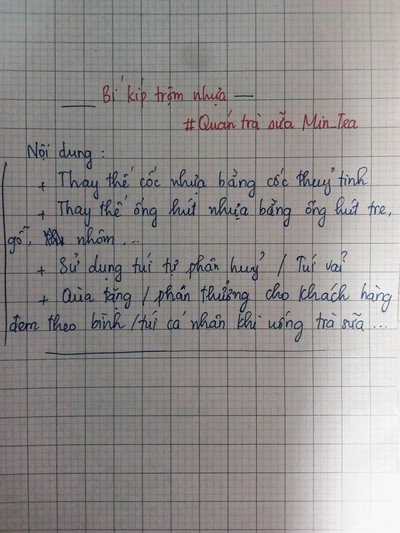 Bí kíp trộm nhựa
# Quán trà sữa Min_Tea
Nội dung :
+ Thay thế cốc nhựa bằng cốc thuỷ tinh
+ Thay thế ống hút nhựa bằng ống hút tre,
gỗ, nhôm ...
+ Sử dụng túi tự phân huỷ / Túi vải
+ Qùa tặng / phần thưởng cho khách hàng
đem theo bình / túi cá nhân khi uống trà sữa ...